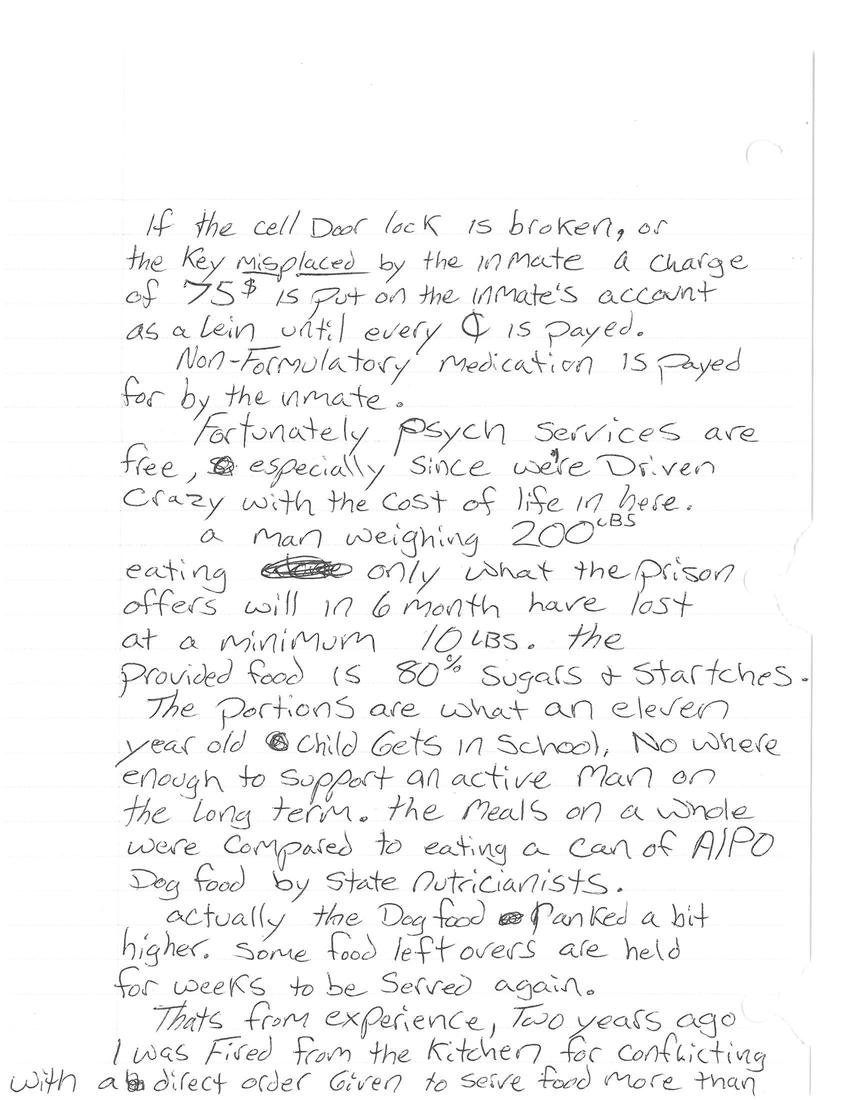 If the cell Door lock is broken, or
the Key misplaced by the inmate a charge
of 75$ is put on the inmate's account
as a lein until every ¢ is payed.
Non-Formulatory medication is payed
for by the inmate.
Fortunately psych services are
free, especially since we're Driven
crazy with the cost of life in here.
a man weighing 200 LBS
eating only what the prison
offers will in 6 month have lost
at a minimum 10 LBS. the
provided food is 80% sugars & startches.
The portions are what an eleven
year old child Gets in School, No where
enough to support an active man on
the long term. the meals on a whole
were compared to eating a can of AlPO
Dog food by state nutricianists.
actually the Dog food Ranked a bit
higher. some food left overs are held
for weeks to be served again.
Thats from experience, Two years ago
I was Fired from the kitchen for conflicting
with a direct order Given to serve food more than